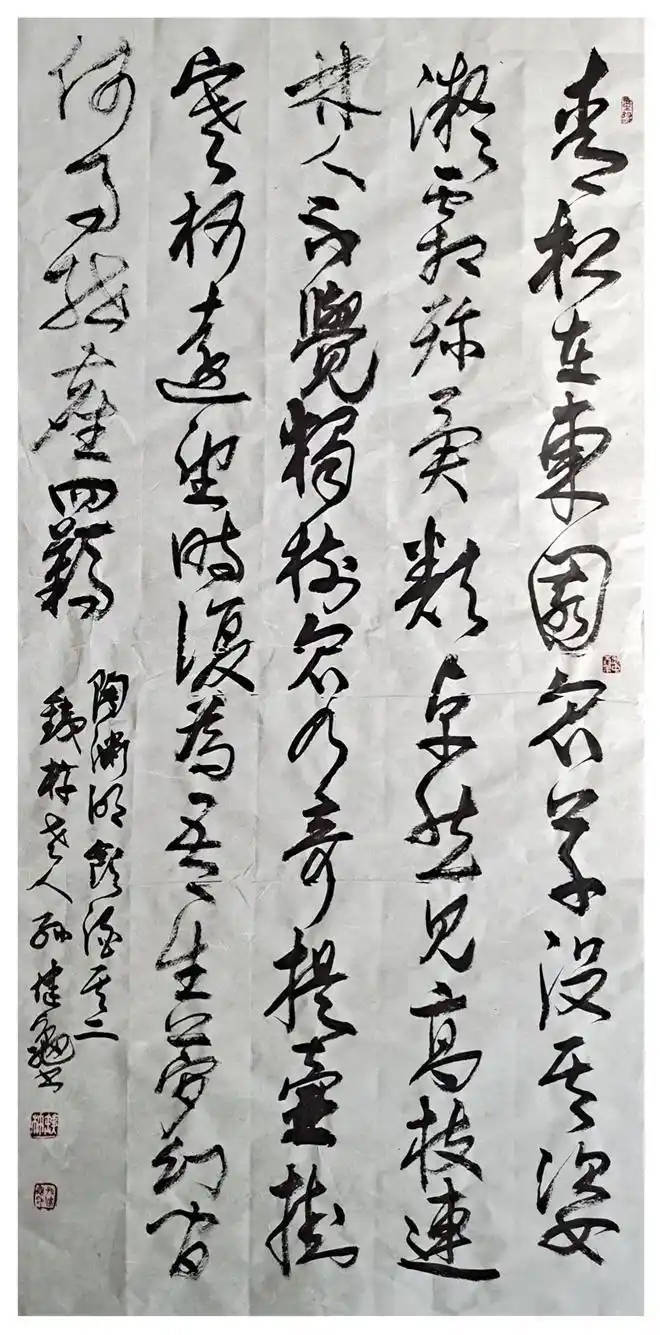 青松在東園眾草沒其姿
凝霜殄異類卓然見高枝連
林人不覺獨樹眾乃奇提壺掛
寒柯遠望時復為吾生夢幻間
何事紲塵羈
陶淵明飲酒其二
老人孫建書